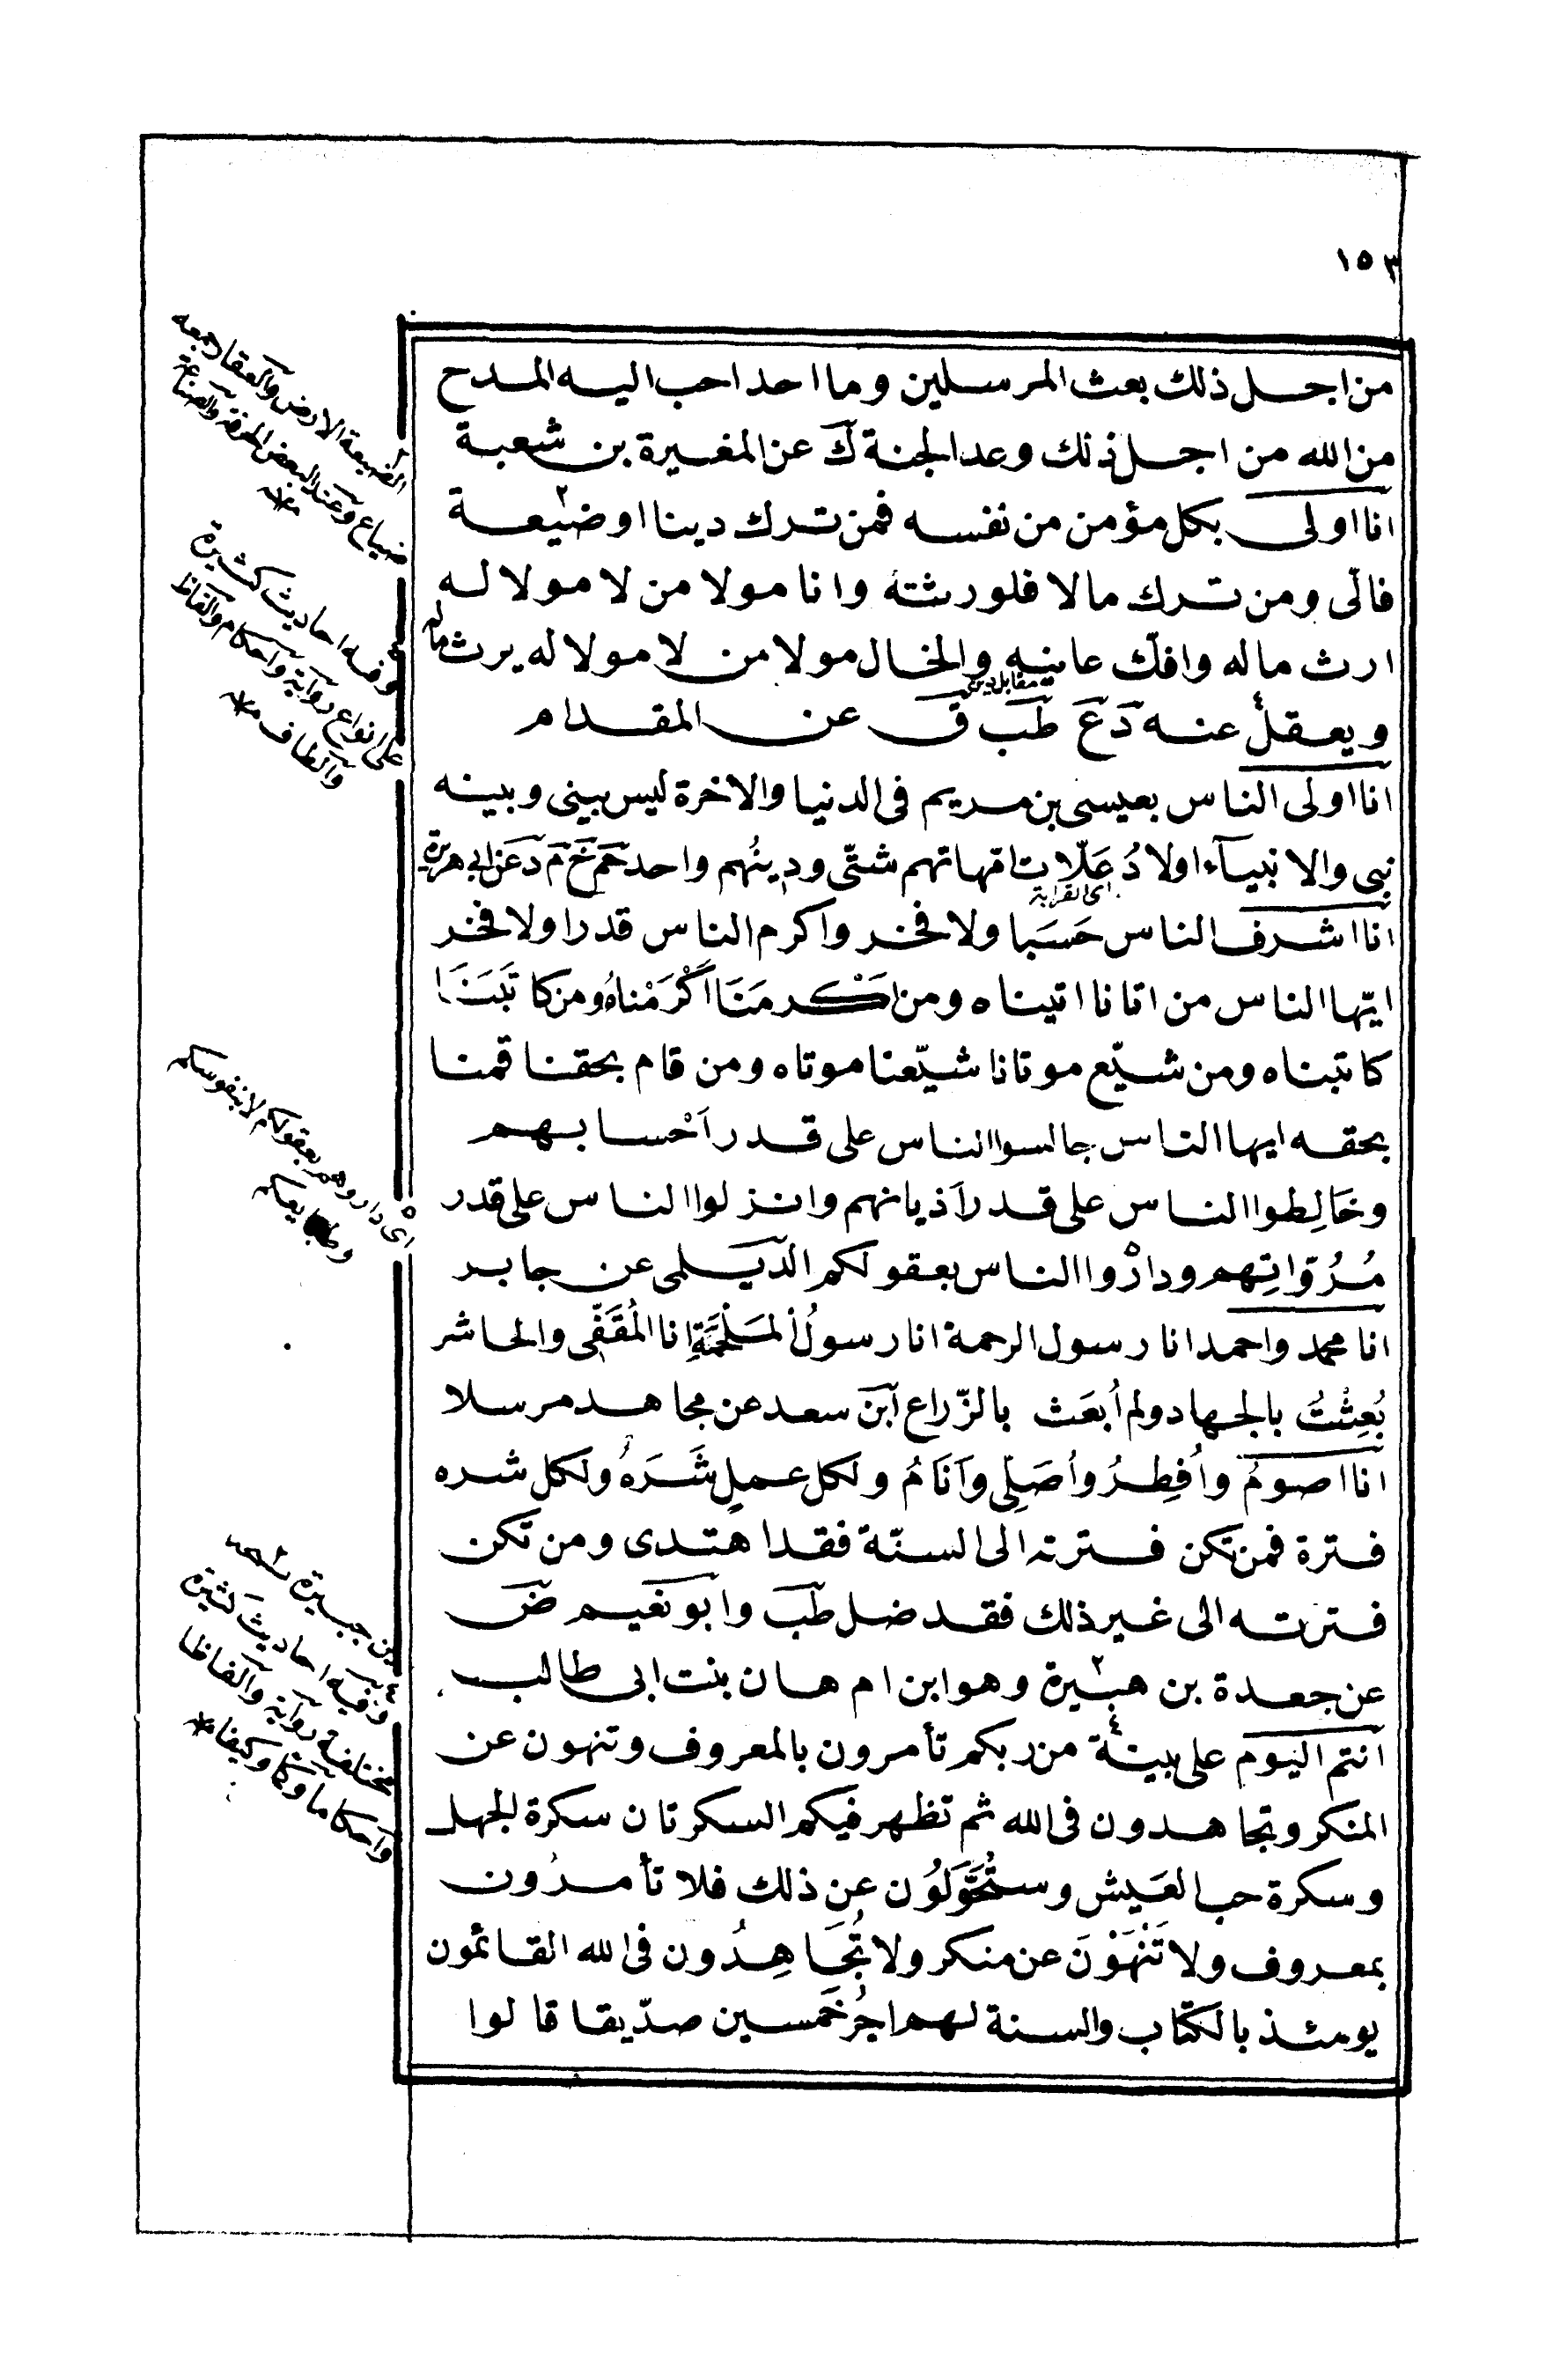 ١٥٣
من اجل ذلك بعث المرسلين وما احد احب اليه المدح
من الله من اجل ذلك وعد الجنة ك عن المغيرة بن شعبة
انا اولى بكل مؤمن من نفسه فمن ترك دينا او ضيعة
فالّى ومن ترك مالا فلورثته وانا مولا من لا مولا له
ارث ماله وافكّ عانيه والخال مولا من لا مولا له يرث ماله
ويعقل عنه دَعَ طَبَ قَ عن المقدام
انا اولى الناس بعيسى بن مريم فى الدنيا والاخرة ليس بينى وبينه
نبى والانبيآء اولادُ عَلّات امّهاتهم شتّى ودينُهم واحد حَمَ خَ مَ دَ عَن ابى هريرة
اى القرابة
انا اشرف الناس حَسَبا ولا فخر واكرم الناس قدرا ولا فخر
ايّها الناس من اتانا اتيناه ومن اكرمَنَا اَكْرَمْناهُ ومن كاتَبَنَا
كاتبناه ومن شيّع موتانا شيّعنا موتاه ومن قام بحقنا قمنا
بحقه ايها الناس جالسوا الناس على قدر اَحْسابهم
وخَالِطوا الناس على قدر اَديانهم وانزلوا الناس على قدر
مُرُوّاتِهم ودارْوا الناس بعقولكم الدّيَلمى عن جابر
انا محمد واحمد انا رسول الرحمة انا رسولُ المَلْحَمَةِ انا المُقَفّى والحاشر
بُعِثْتُ بالجهاد ولم اُبعَث بالزّراع ابنَ سعد عن مجاهد مرسلا
انا اصومُ واُفطِرُ واُصَلِّى واَنَامُ ولكل عملٍ شَرَهُ ولكل شره
فترة فمن تكن فترته الى السنّة فقد اهتدى ومن تكن
فترته الى غير ذلك فقد ضل طَبَ وابو نَعَيم ضَ
عن جعدة بن هبيرة وهو ابن ام هان بنت ابى طالب
انتم اليوم على بينة من ربكم تأمرون بالمعروف وتنهون عن
المنكر وتجاهدون فى الله ثم تظهر فيكم السكرتان سكرة الجهل
وسكرة حب العَيش وستُحَوَّلُون عن ذلك فلا تأمرُون
بمعروف ولا تَنْهَوْنَ عن منكر ولا تُجَاهِدُون فى الله القائمون
يومئذ بالكتاب والسنة لهم اجرُ خَمسين صدّيقا قالوا
الضيعة الارض والعقار جمعه
ضياع وعند البعض الحرفة والصناعة
وفيه احاديث كثيرة
على انواع رواية واحكام والفاظ
والطاف
اى داروهم بعقولكم لا بنفوسكم
بن جبيرة
وفيه احاديث كثيرة
مختلفة رواية والفاظا
واحكاما وكمّا وكيفا